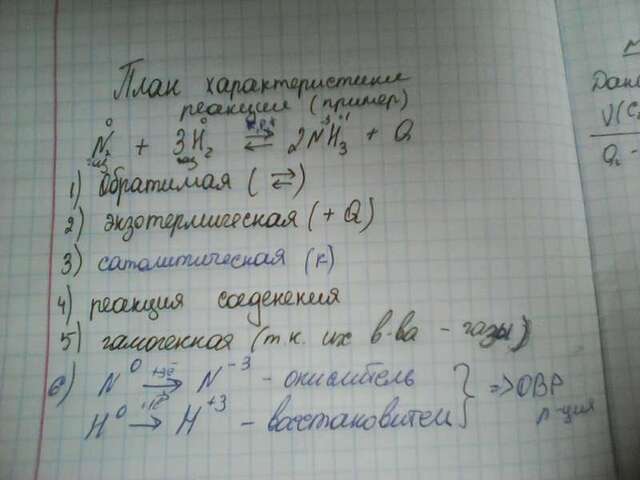 План характеристики
реакции (пример)
N₂⁰ + 3H₂⁰ ⇄ 2N⁻³H₃⁺¹ + Q
газ газ
1) обратимая (⇄)
2) экзотермическая (+Q)
3) саталитическая (к)
4) реакция соеденения
5) гамогенная (т.к. их в-ва - газы)
6) N⁰ → N⁻³ - окислитель
H⁰ → H⁺³ - восстановители } => ОВР
р-ция
Дано
V(C